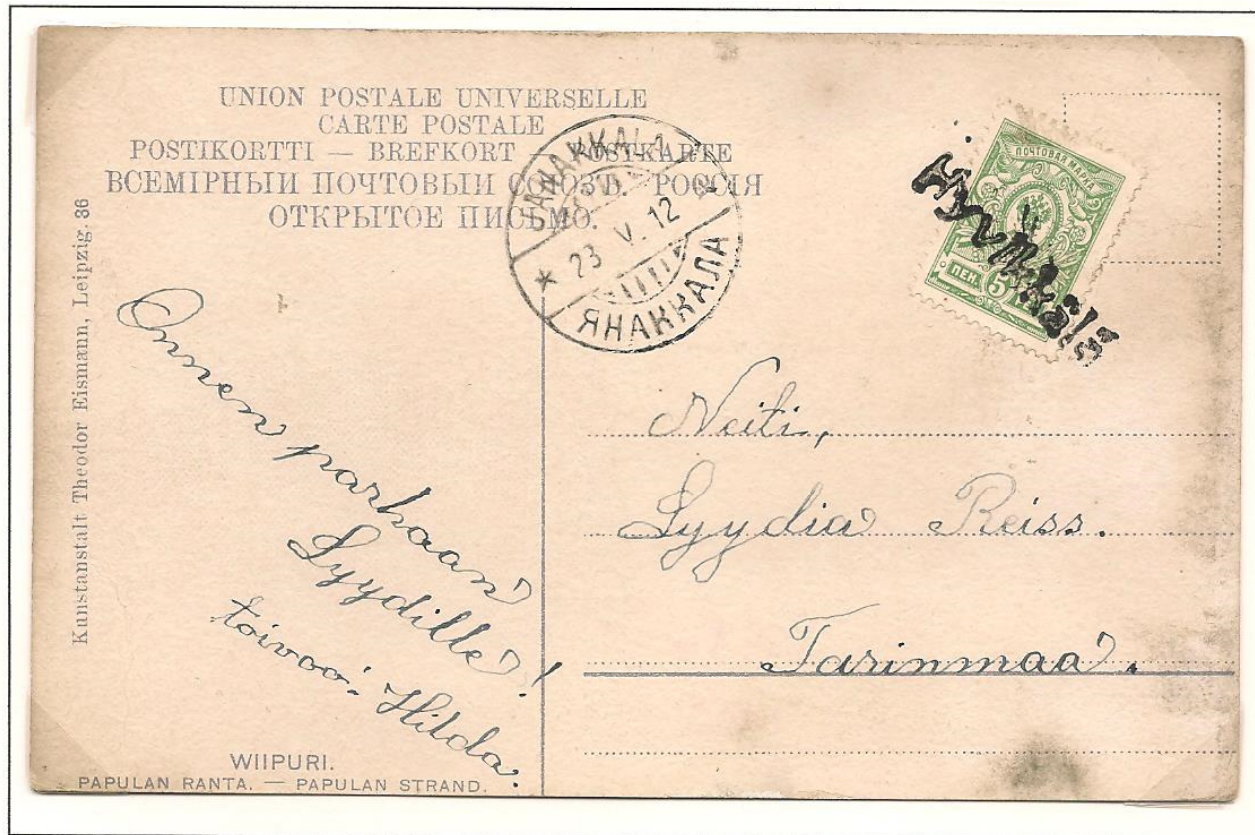 UNION POSTALE UNIVERSELLE
CARTE POSTALE
POSTIKORTTI — BREFKORT POSTKARTE
ВСЕМІРНЫЙ ПОЧТОВЫЙ СОЮЗЪ. РОССІЯ
ОТКРЫТОЕ ПИСЬМО.
JANAKKALA
23 V. 12
ЯНАККАЛА
ПОЧТОВАЯ МАРКА
ПЕН. 5 PEN.
Kunstanstalt Theodor Eismann, Leipzig. 36
Onnen parhaan
Lyydille!
toivoo: Hilda.
Neiti,
Lyydia Reiss.
Tarinmaa.
WIIPURI.
PAPULAN RANTA. — PAPULAN STRAND.